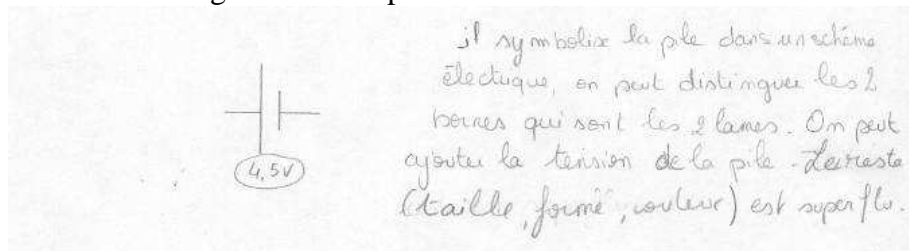 il symbolise la pile dans un schéma
électrique, on peut distinguer les 2
bornes qui sont les 2 lames. On peut
ajouter la tension de la pile. Le reste
(taille, forme, couleur) est superflu.
4,5V